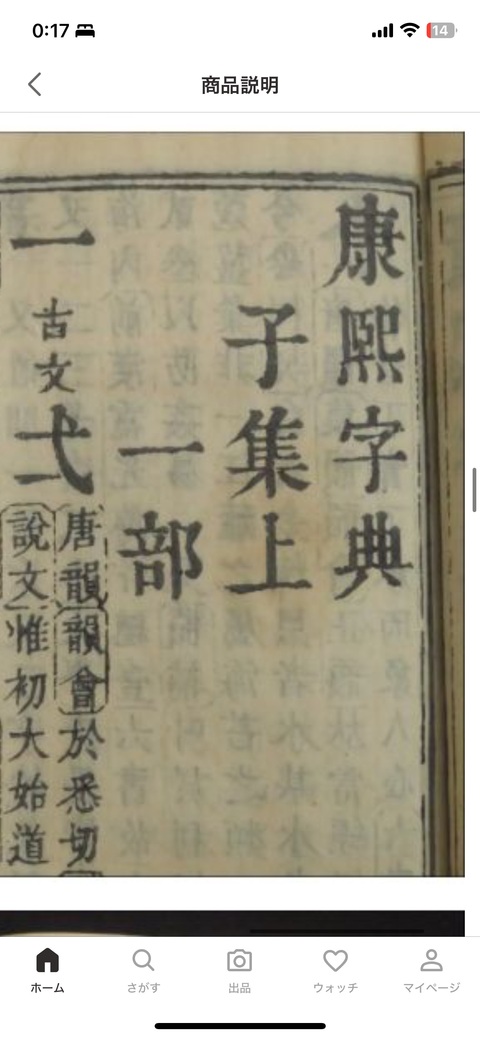 0:17
14
商品説明
康熙字典
子集上
一部
一 古文 弌 唐韻韻會於悉切
說文惟初大始道
ホーム
さがす
出品
ウォッチ
マイページ